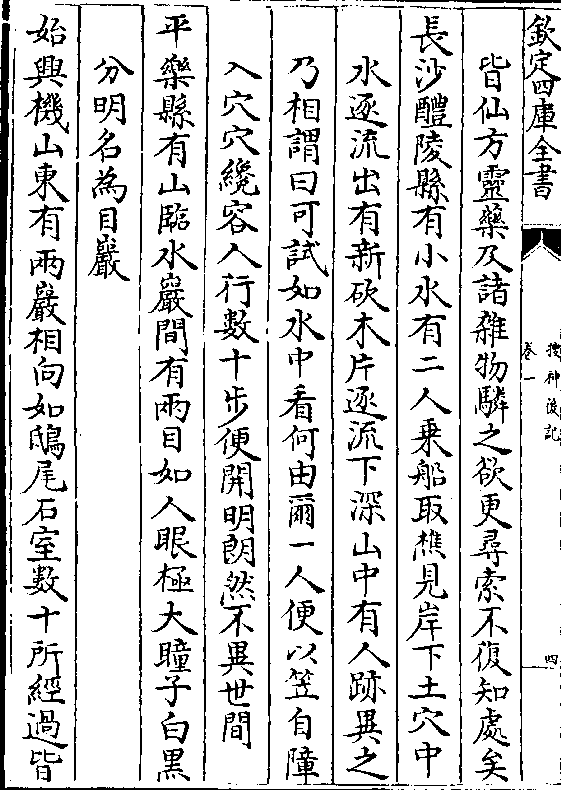 欽定四庫全書
搜神後記
卷一
四
皆仙方靈藥及諸雜物驎之欲更尋索不復知處矣
長沙醴陵縣有小水有二人乗船取樵見岸下土穴中
水逐流出有新砍木片逐流下深山中有人跡異之
乃相謂曰可試如水中看何由爾一人便以笠自障
入穴穴纔容人行數十步便開明朗然不異世間
平樂縣有山臨水巖間有兩目如人眼極大瞳子白黑
分明名為目巖
始興機山東有兩巖相向如鴟尾石室數十所經過皆